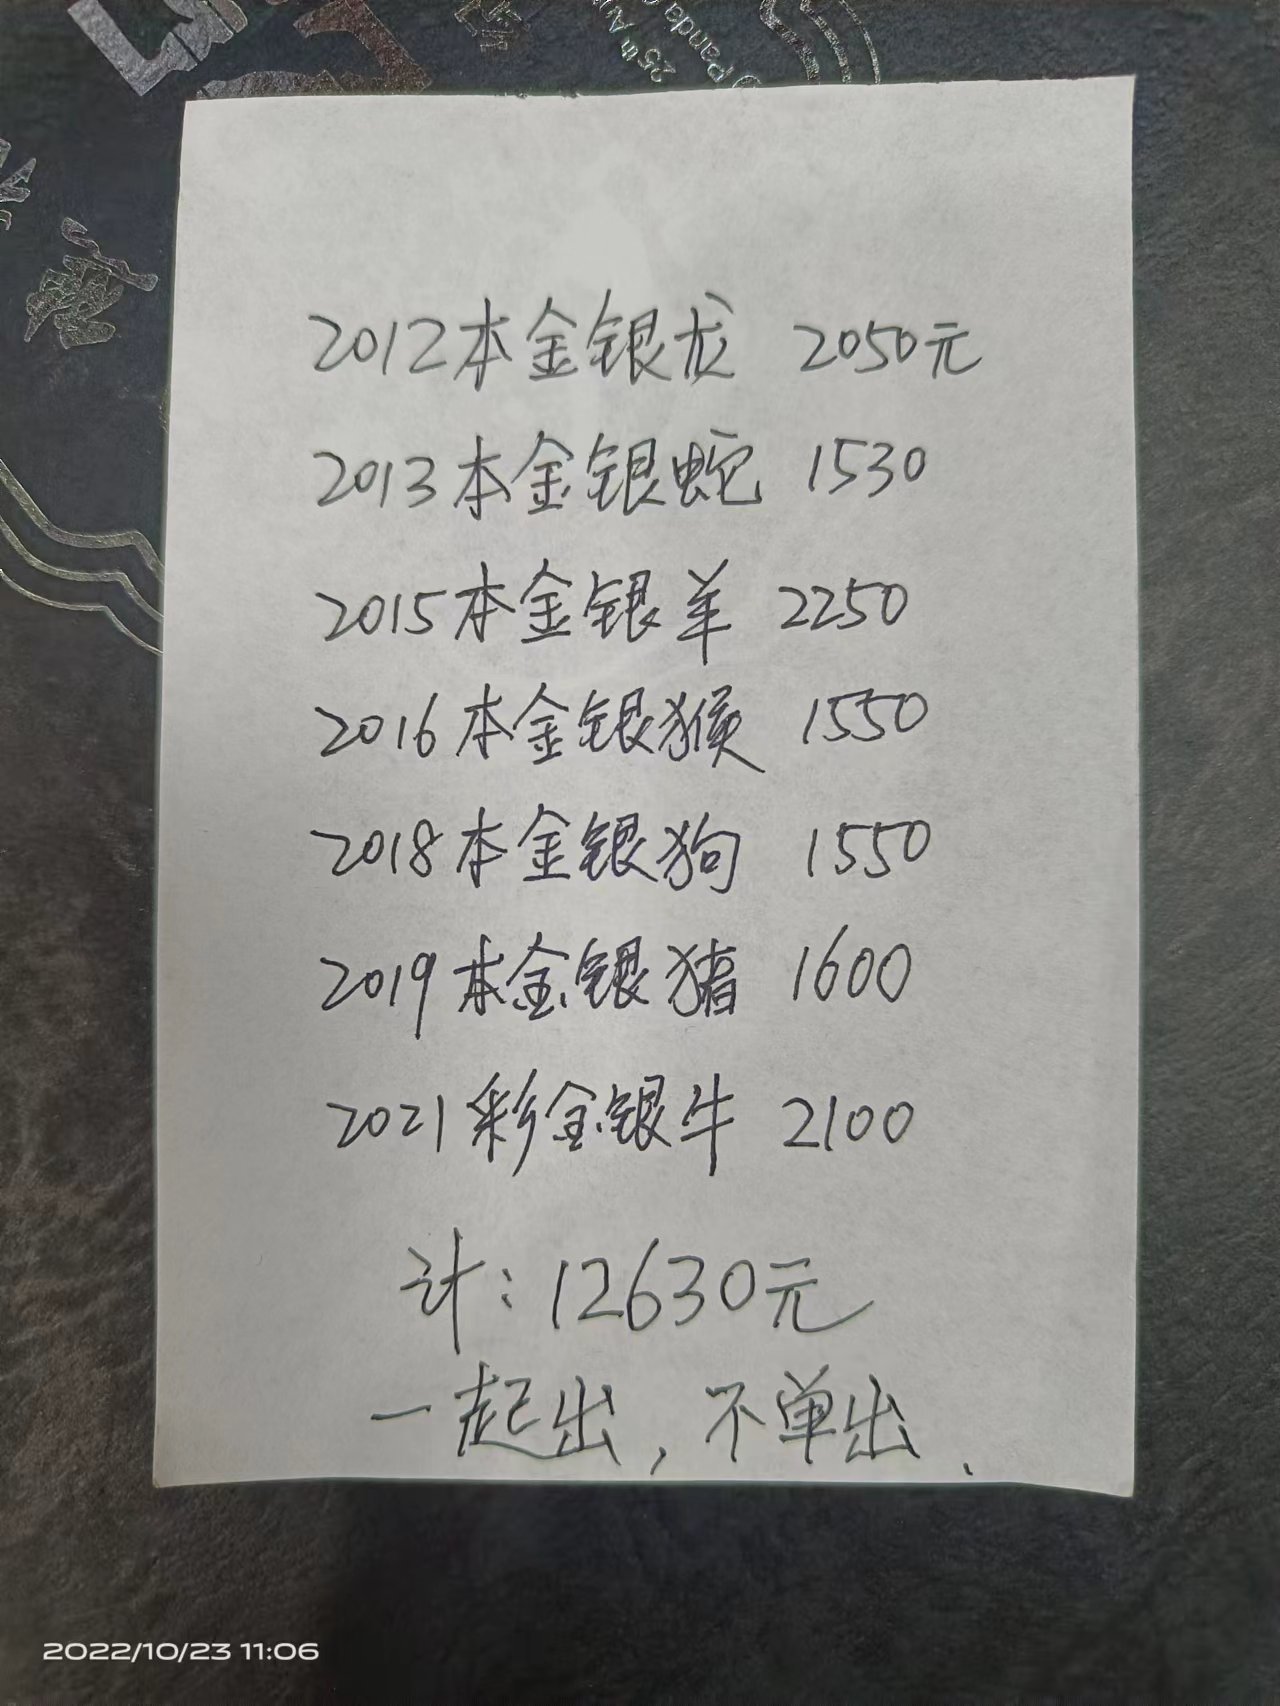 25th An
Panda
2012本金银龙 2050元
2013本金银蛇 1530
2015本金银羊 2250
2016本金银猴 1550
2018本金银狗 1550
2019本金银猪 1600
2021彩金银牛 2100
计：12630元
一起出，不单出、
2022/10/23 11:06